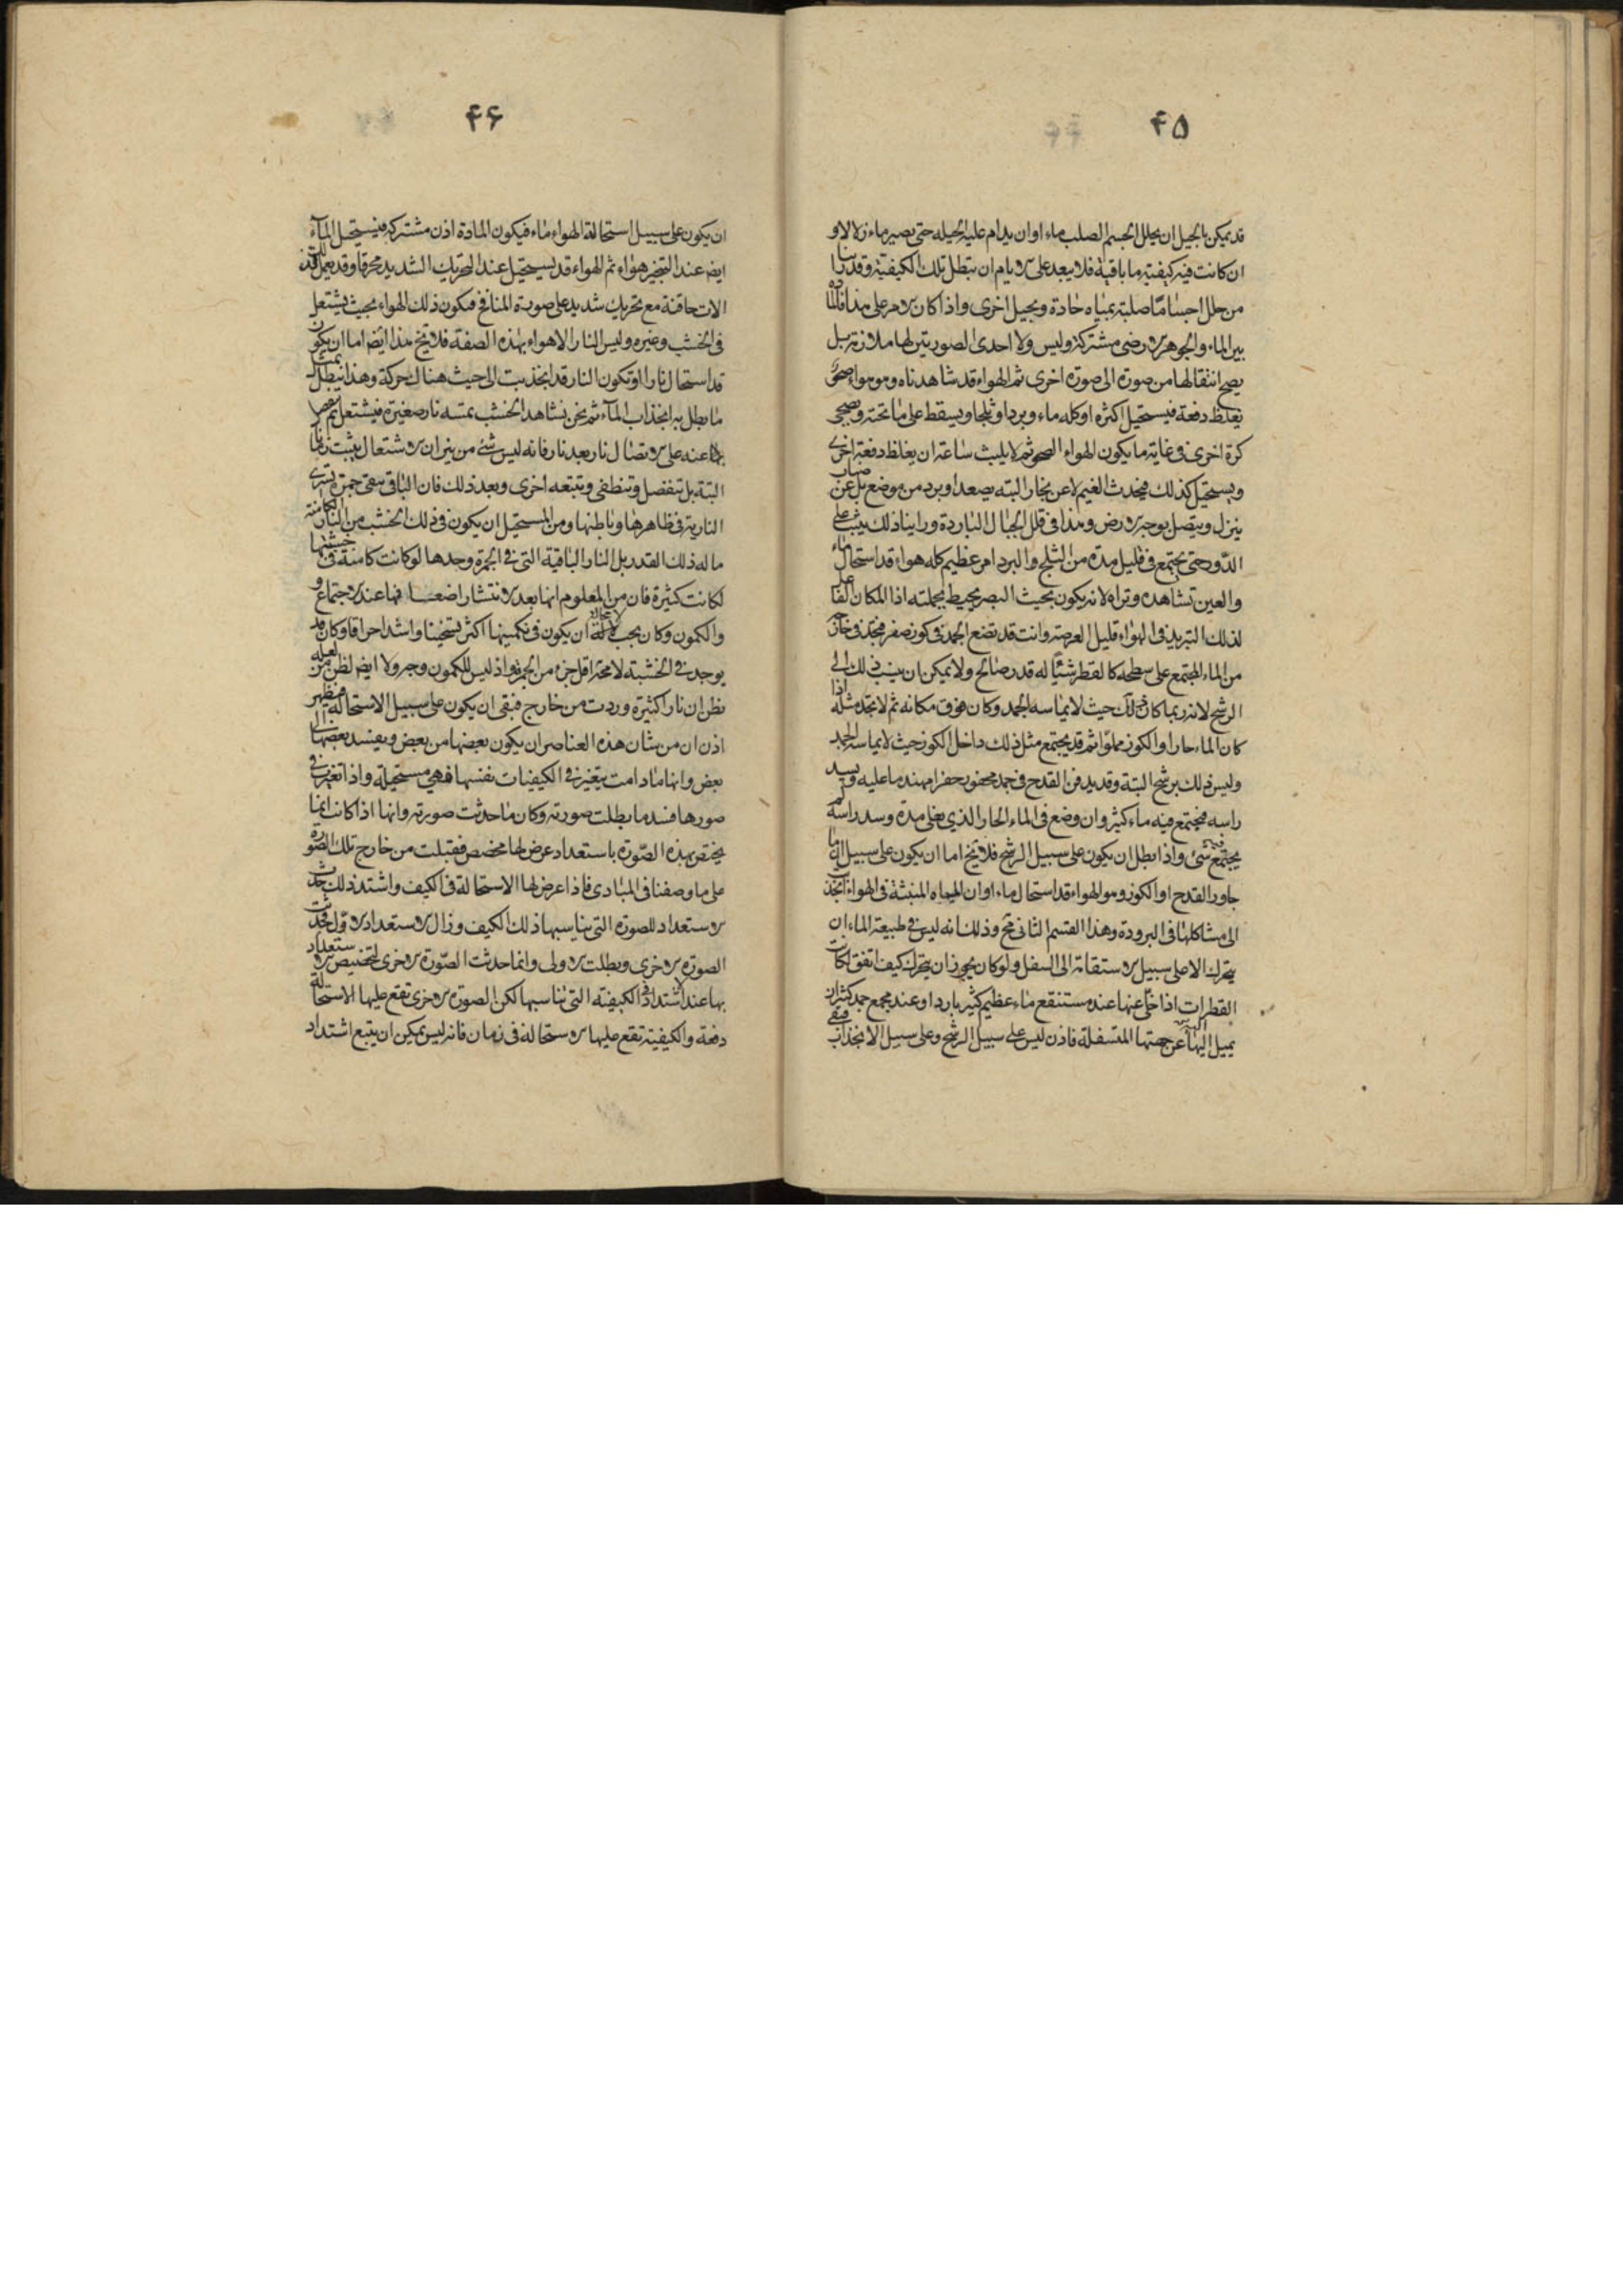 ۴۵
قد يمكن بالحيل ان يحلل الجسم الصلب ماء اوان يدام عليه الحيله حتى يصير ماء زلالا و
ان كانت فيه كيفيته ما باقية فلا يبعد على الايام ان تبطل تلك الكيفية وقد راينا
من حلل اجسامًا صلبة بمياه حادة وبحيل اخرى واذا كان الامر على هذا فالمادة
بين الماء والجوهر الارضى مشتركة وليس ولا احدى الصورتين لها ملازمة بل
يصح انتقالها من صورة الى صورة اخرى ثم الهواء قد شاهدناه وهو هواء صحو
يغلظ دفعة فيستحيل اكثره اوكله ماء وبردا وثلجا ويسقط على ما تحته ويصحى
كرة اخرى فى غاية ما يكون الهواء الصحو ثم لا يلبث ساعة ان يغلظ دفعة اخرى
ويستحيل كذلك فيحدث الغيم لا عن بخار البته يصعد او يرد من موضع بل عن ضباب
ينزل ويتصل بوجه الارض وهذا فى قلل الجبال الباردة وراينا ذلك يثبت على
الدّور حتى يجتمع فى قليل مدة من الثلج والبرد امر عظيم كله هواء قد استحال ماء
والعين تشاهده وتراه لانه يكون بحيث البصر يحيط بجملته اذا المكان الفاعل
لذلك التبريد فى الهواء قليل العرصة وانت قد تضع الجمد فى كوز صفر فتجد فى خارجه
من الماء المجتمع على سطحه كالقطر شيئًا له قدر صالح ولا يمكن ان ينسب ذلك الى
الرشح لانه ربما كان ذلك حيث لا يماسه الجمد وكان فوق مكانه ثم لا تجد مثله اذا
كان الماء حارا والكوز مملوّا ثم قد يجتمع مثل ذلك داخل الكوز حيث لا يماسه الجمد
وليس ذلك برشح البتة وقد يدفن القدح فى جمد محفور حفرا مهندما عليه ويسد
راسه فيجتمع فيه ماء كثير وان وضع فى الماء الحار الذى يغلى مدة وسد راسه لم
يجتمع فيه شئ واذا بطل ان يكون على سبيل الرشح فلا يخ اما ان يكون على سبيل ان ما
جاور القدح او الكوز وهو الهواء قد استحال ماء او ان المياه المنبثة فى الهواء انجذبت
الى مشاكلها فى البرودة وهذا القسم الثانى مح وذلك انه ليس فى طبيعة الماء ان
يتحرك الا على سبيل الاستقامة الى السفل ولو كان يجوز ان يتحرك كيف اتفق لكانت
القطرات اذا خلّى عنها عند مستنقع ماء عظيم كثير باردا وعند مجمع جمد كثير ان
يميل اليها عن جهتها المتسفلة فاذن ليس على سبيل الرشح وعلى سبيل الانجذاب فبقى
۴۶
ان يكون على سبيل استحالة الهواء ماء فيكون المادة اذن مشتركة فيستحيل الماء
ايضا عند التبخير هواء ثم الهواء قد يستحيل عند التحريك الشديد محرقا وقد يعمل لذلك
الات حاقنة مع تحريك شديد على صورة المنافخ فيكون ذلك الهواء بحيث يشتعل
فى الخشب وغيره وليس النار الا هواء بهذه الصفة فلا يخ هذا ايضا اما ان يكون
قد استحال نارا او تكون النار قد انجذبت الى حيث هناك حركة وهذا يبطل بمثل
ما بطل به انجذاب الماء ثم نحن نشاهد الخشب تمسه نار صغيرة فيشتعل ثم
عنه على الاتصال نار بعد نار فانه ليس شئ من نيران الاشتعال يثبت زمانا
البتة بل تنفصل وتنطفى وتتبعه اخرى وبعد ذلك فان الباقى يبقى جمرة تسرى
النارية فى ظاهرها وباطنها ومن المستحيل ان يكون فى ذلك الخشب من النار الكامنة
ما له ذلك القدر بل النار الباقية التى فى الجمرة وحدها لو كانت كامنة فى خشبتها
لكانت كثيرة فان من المعلوم انها بعد الانتشار اضعف منها عند الاجتماع
والكمون وكان يجب لا محالة ان يكون فى كمينها اكثر تسخينا واشد احراقا وكان قد
يوجد فى الخشبة لا محة اقل جزء من الجمر واذ ليس للكمون وجه ولا ايضا لظن من لعله
يظن ان نارا كثيرة وردت من خارج فبقى ان يكون على سبيل الاستحالة فيظهر
اذن ان من شان هذه العناصر ان يكون بعضها من بعض ويفسد بعضها الى
بعض وانها ما دامت يتغير فى الكيفيات نفسها فهى مستحيلة واذا تغيرت فى
صورها فسد ما بطلت صورته وكان ما حدثت صورته وانها اذا كانت انما
يختص بهذه الصّورة باستعداد عرض لها مخصص فقبلت من خارج تلك الصّورة
على ما وصفنا فى المبادى فاذا عرض لها الاستحالة فى الكيف واشتد ذلك حدث
الاستعداد للصورة التى يناسبها ذلك الكيف وزال الاستعداد الاوّل فحدثت
الصورة الاخرى وبطلت الاولى وانما حدثت الصّورة الاخرى لتخصيص الاستعداد
بها عند اشتداد الكيفية التى تناسبها لكن الصورة الاخرى تقع عليها الاستحالة
دفعة والكيفية تقع عليها الاستحالة فى زمان فانه ليس يمكن ان يتبع اشتداد